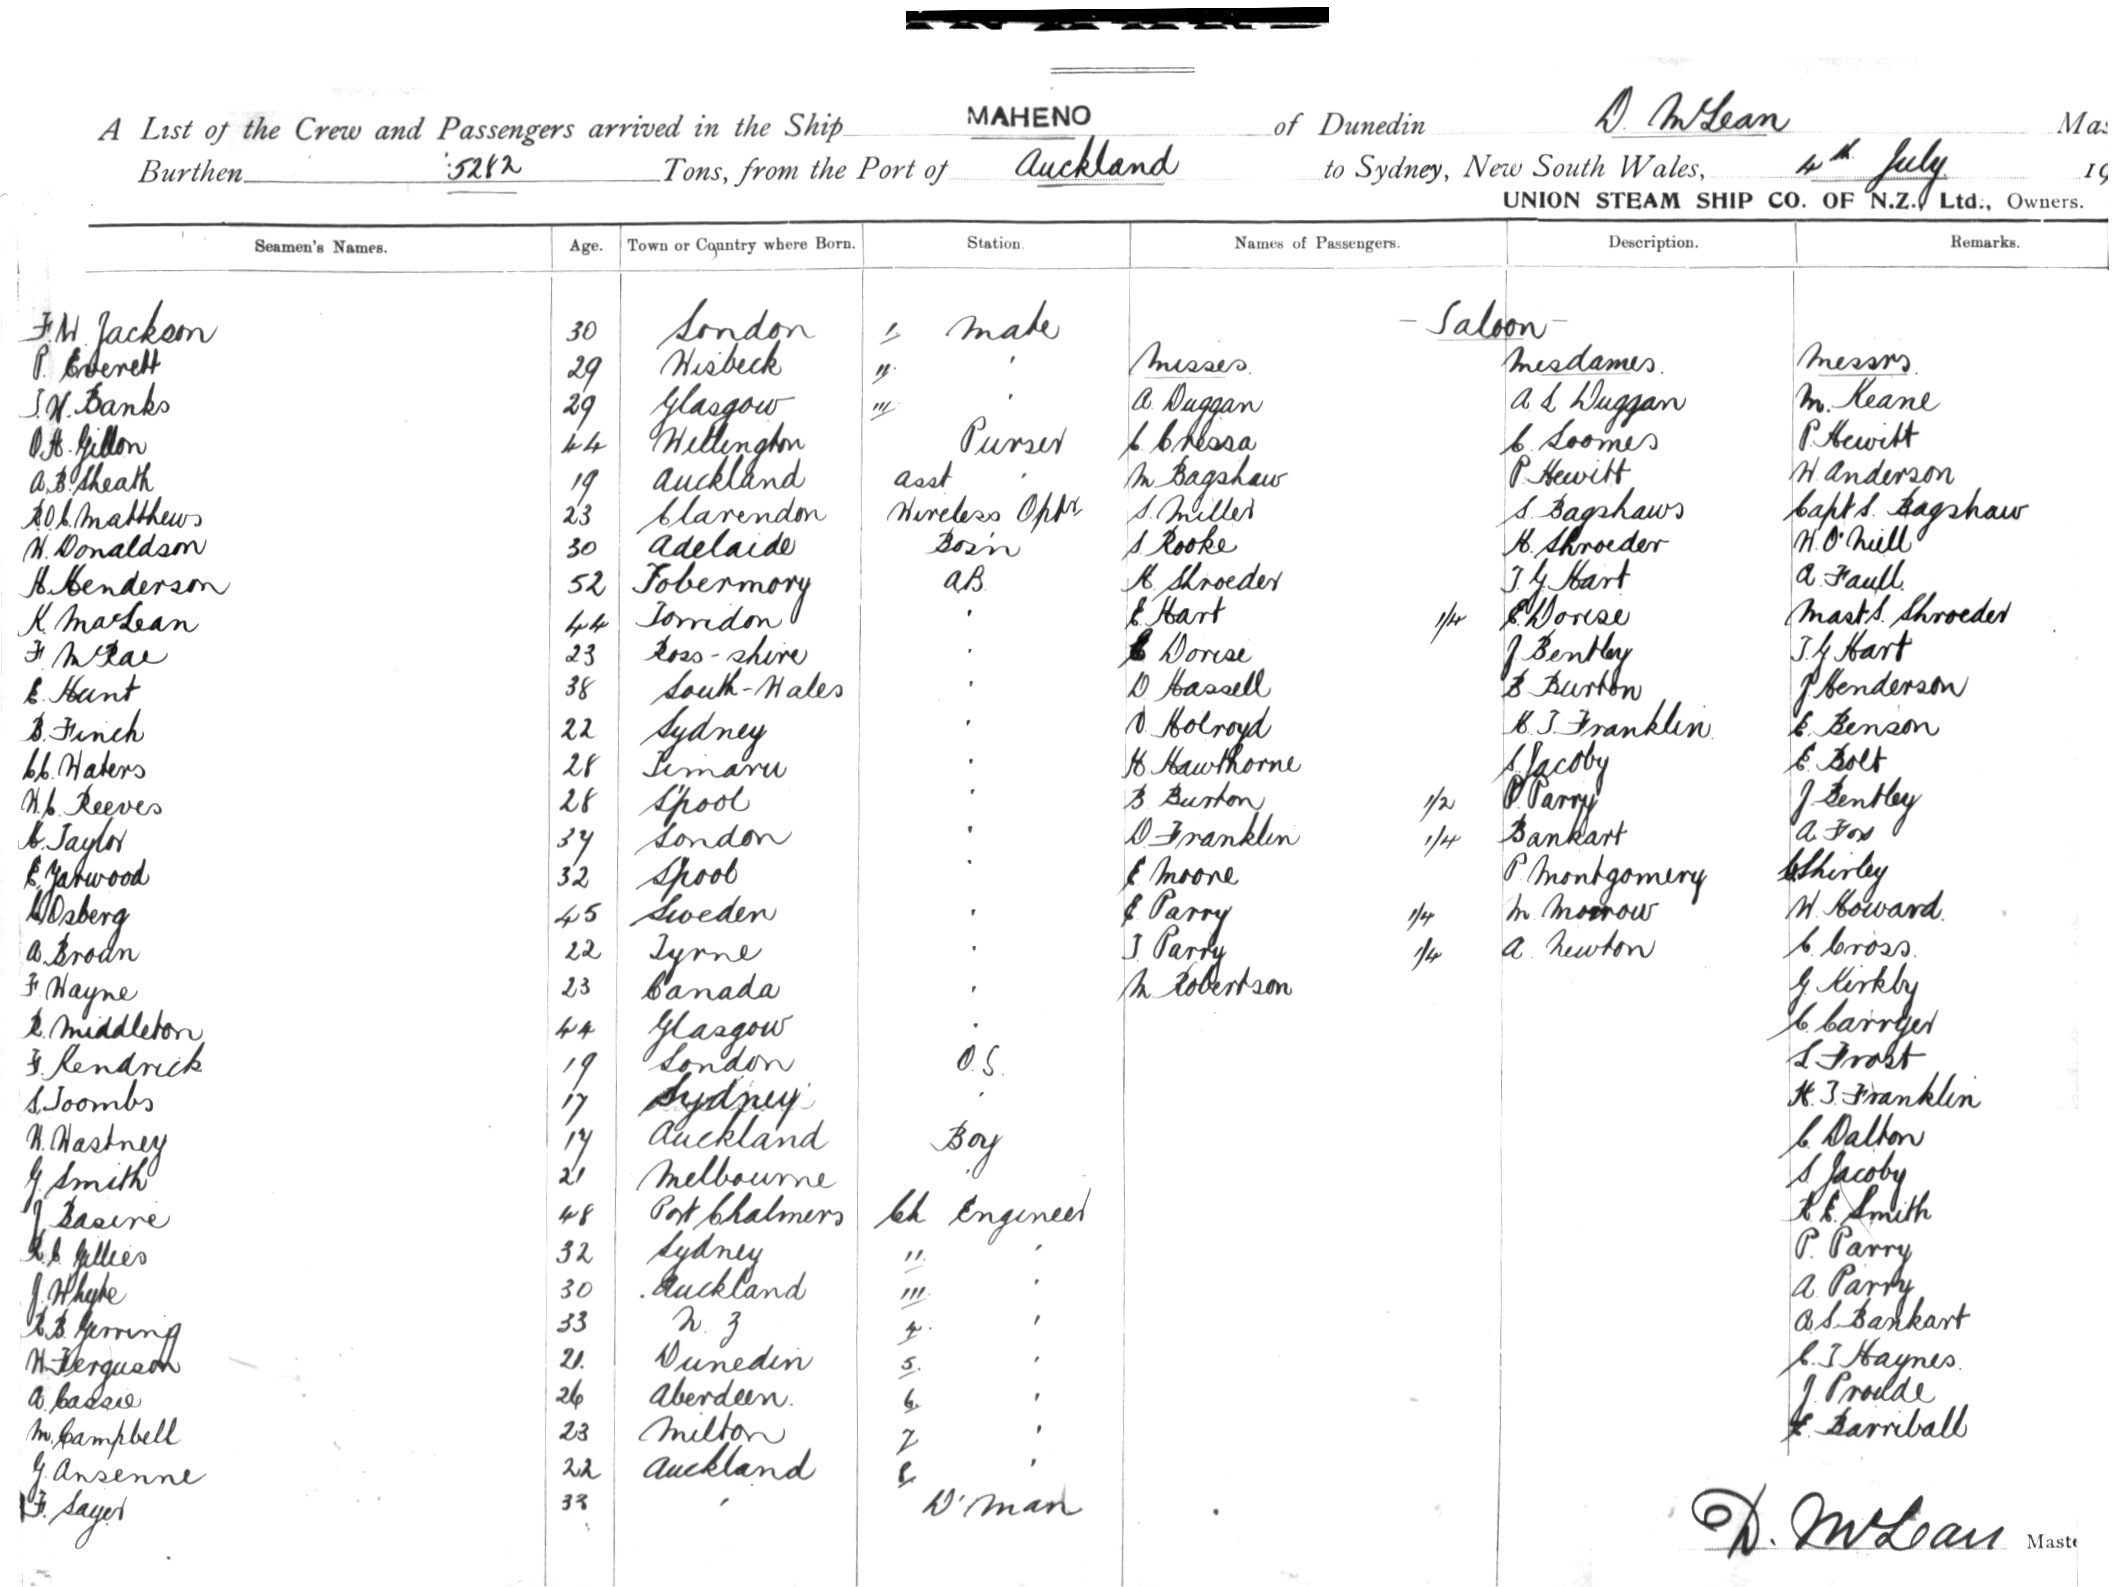 A List of the Crew and Passengers arrived in the Ship MAHENO of Dunedin D. McLean Mas
Burthen 5282 Tons, from the Port of Auckland to Sydney, New South Wales, 4th July 19
UNION STEAM SHIP CO. OF N.Z., Ltd., Owners.
Seamen's Names. Age. Town or Country where Born. Station. Names of Passengers. Description. Remarks.
F. W. Jackson 30 London 1 Mate - Saloon -
P. Everett 29 Wisbeck 11 ' Misses. Mesdames. Messrs.
J. W. Banks 29 Glasgow 111 ' A. Duggan A L Duggan M. Keane
O. H. Gillon 44 Wellington Purser C. Cressa C. Loomes P Hewitt
A. B. Sheath 19 Auckland Asst ' M Bagshaw P Hewitt W Anderson
R. O. C. Matthews 23 Clarendon Wireless Optr S. Miller S Bagshaws Capt S. Bagshaw
W. Donaldson 30 Adelaide Bos'n S Rooke H. Shroeder W. O'Niell
H. Henderson 52 Tobermory AB. H. Shroeder T. G. Hart A. Faull.
K. MacLean 44 Torridon ' E Hart 1/4 E Dorise Mast S. Shroeder
F. McRae 23 Ross-shire ' E Dorise J Bentley T. G Hart
E. Hunt 38 South-Wales ' D Hassell B Burton J Henderson
B. Finch 22 Sydney ' O. Holroyd H. T. Franklin. E. Benson
C.C. Waters 28 Timaru ' H Hawthorne S. Jacoby E. Bolt
W. C. Reeves 28 L'pool ' B Burton 1/2 P. Parry J Bentley
H. Taylor 37 London ' D Franklin 1/4 Bankart A Fox
E. Yarwood 32 L'pool ' E Moore P. Montgomery C Shirley
Osberg 45 Sweden ' E Parry 1/4 M. Morrow W. Howard.
A. Broan 22 Tyrne ' T Parry 1/4 A Newton C. Cross.
F. Wayne 23 Canada ' M Robertson G Kirkby
R. Middleton 44 Glasgow ' C. Carryer
F. Kendrick 19 London O.S. L Frost
S. Toombs 17 Sydney ' H. T. Franklin
W. Wastney 17 Auckland Boy C. Dalton
G. Smith 21 Melbourne ' S Jacoby
J. Basire 48 Port Chalmers Ch Engineer R E. Smith
R. C. Gillies 32 Sydney 11 ' P. Parry
J. Whyte 30 Auckland 111 ' A Parry
R. B. Gerring 33 N. Z 4 ' A. S. Bankart
W. Ferguson 21. Dunedin 5. ' C. T Haynes.
A. Cassie 26 Aberdeen. 6. ' J. Proude
M. Campbell 23 Milton 7 ' E. Barriball
G. Ansenne 22 Auckland 8 '
F. Sayer 33 ' D'Man
D. McLean Maste